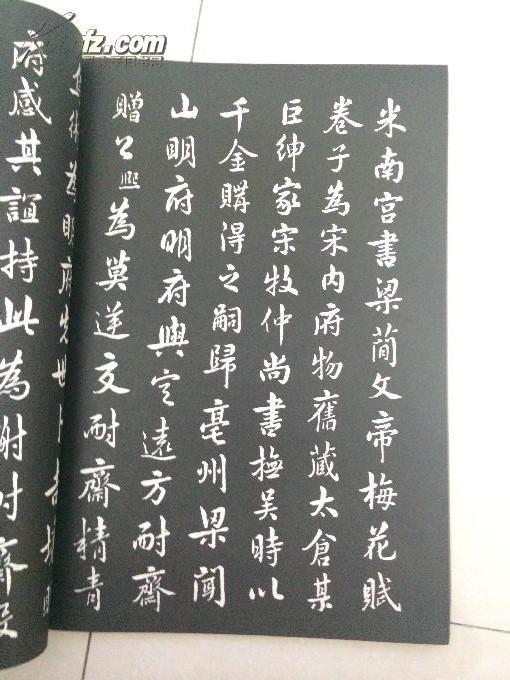 米南宫書梁蕳文帝梅花賦
卷子為宋内府物舊藏太倉某
巨紳家宋牧仲尚書撫吴時以
千金購得之嗣歸亳州梁闻
山明府明府與定遠方耐齋
贈公熙為莫逆交耐齋精青
為明府先世
府感其誼持此為謝耐齋